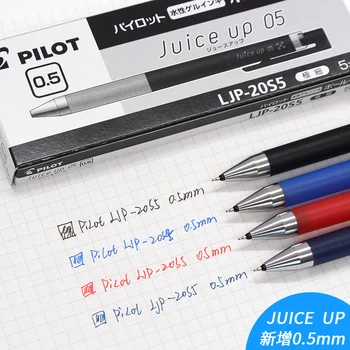 PILOT
0.5
パイロット 水性ゲルインキ
Juice up 05
ジュースアップ
LJP-20S5
極細
パイロット
ボール
LJP-20S5
PILOT
Juice up [05]
Pilot LJP-20S5 0.5mm
Pilot LJP-20S5 0.5mm
Pilot LJP-20S5 0.5mm
Pilot LJP-20S5 0.5mm
JUICE UP
新增0.5mm